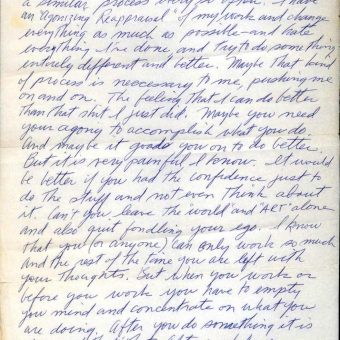 a similar process every so often. I have
an Agonizing Reappraisal of my work and change
everything as much as possible - and hate
everything I've done, and try to do something
entirely different and better. Maybe that kind
of process is necessary to me, pushing me
on and on. The feeling that I can do better
than that shit I just did. Maybe you need
your agony to accomplish what you do.
And maybe it goads you on to do better.
But it is very painful I know. It would
be better if you had the confidence just to
do the stuff and not even think about
it. Can't you leave the "world" and "ART" alone
and also quit fondling your ego. I know
that you (or anyone) can only work so much
and the rest of the time you are left with
your thoughts. But when you work or
before you work you have to empty
you mind and concentrate on what you
are doing. After you do something it is